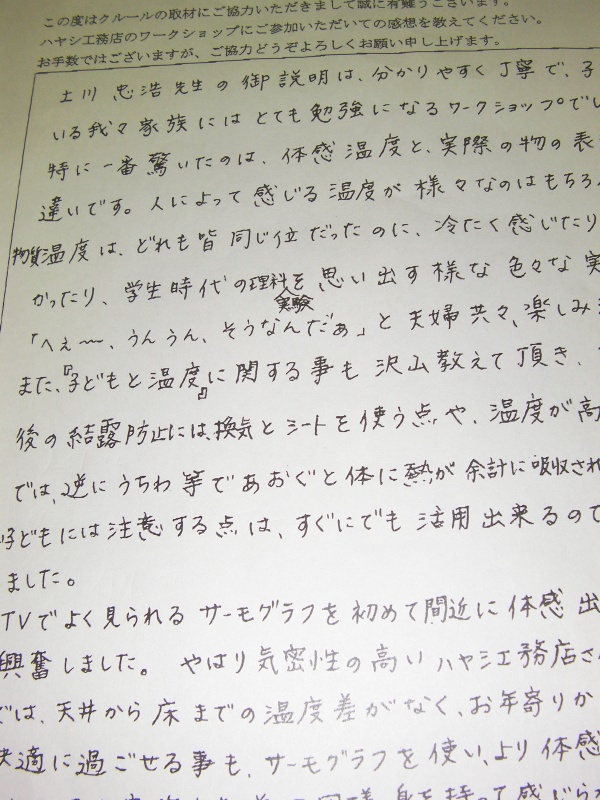 この度はクルールの取材にご協力いただきまして誠に有難うございます。
ハヤシ工務店のワークショップにご参加いただいての感想を教えてください。
お手数ではございますが、ご協力どうぞよろしくお願い申し上げます。
土川 忠浩先生の御説明は、分かりやすく丁寧で、子
いる我々家族にはとても勉強になるワークショップでし
特に一番驚いたのは、体感温度と、実際の物の表
違いです。人によって感じる温度が様々なのはもちろ
物質温度は、どれも皆同じ位だったのに、冷たく感じたり
かったり、学生時代の理科実験を思い出す様な色々な実
「へぇ〜、うんうん、そうなんだぁ」と夫婦共々、楽しみ
また、『子どもと温度』に関する事も沢山教えて頂き、
後の結露防止には、換気とシートを使う点や、温度が高
では、逆にうちわ等であおぐと体に熱が余計に吸収され
子どもには注意する点は、すぐにでも活用出来るので
ました。
TVでよく見られるサーモグラフを初めて間近に体感出
興奮しました。 やはり気密性の高いハヤシ工務店さ
では、天井から床までの温度差がなく、お年寄りか
快適に過ごせる事も、サーモグラフを使い、より体感
身を持って感じら